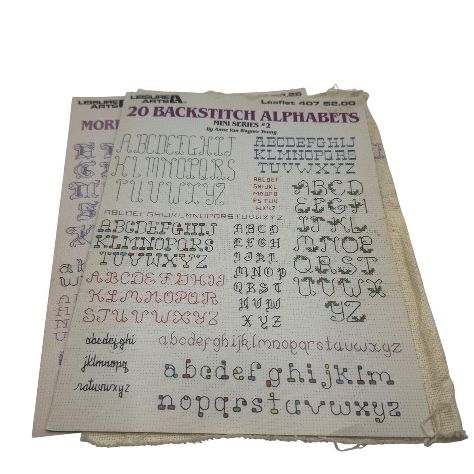 LEISURE ARTS
Leaflet 407 $2.00
20 BACKSTITCH ALPHABETS
MINI SERIES #2
By Anne Van Wagner Young
ABCDEFGHIJ
KLMNOPQRS
TUVWXYZ
ABCDEFGHIJ
KLMNOPQRS
TUVWXYZ
ABCDEF
GHIJKL
MNOPQ
RSTUV
WXYZ
ABCD
EFGH
IJKL
MNOP
QRST
UVWX
YZ
ABCDEFGHIJKLMNOPQRSTUVWXYZ
ABCDEFGHIJ
KLMNOPQRS
TUVWXYZ
ABCD
EFGH
IJKL
MNOP
QRST
UVW
XYZ
ABCDEFGHIJ
KLMNOPQR
STUVWXYZ
abcdefghi
jklmnopq
rstuvwxyz
abcdefghijklmnopqrstuvwxyz
abcdefghijklm
nopqrstuvwxyz
LEISURE ARTS
MORE